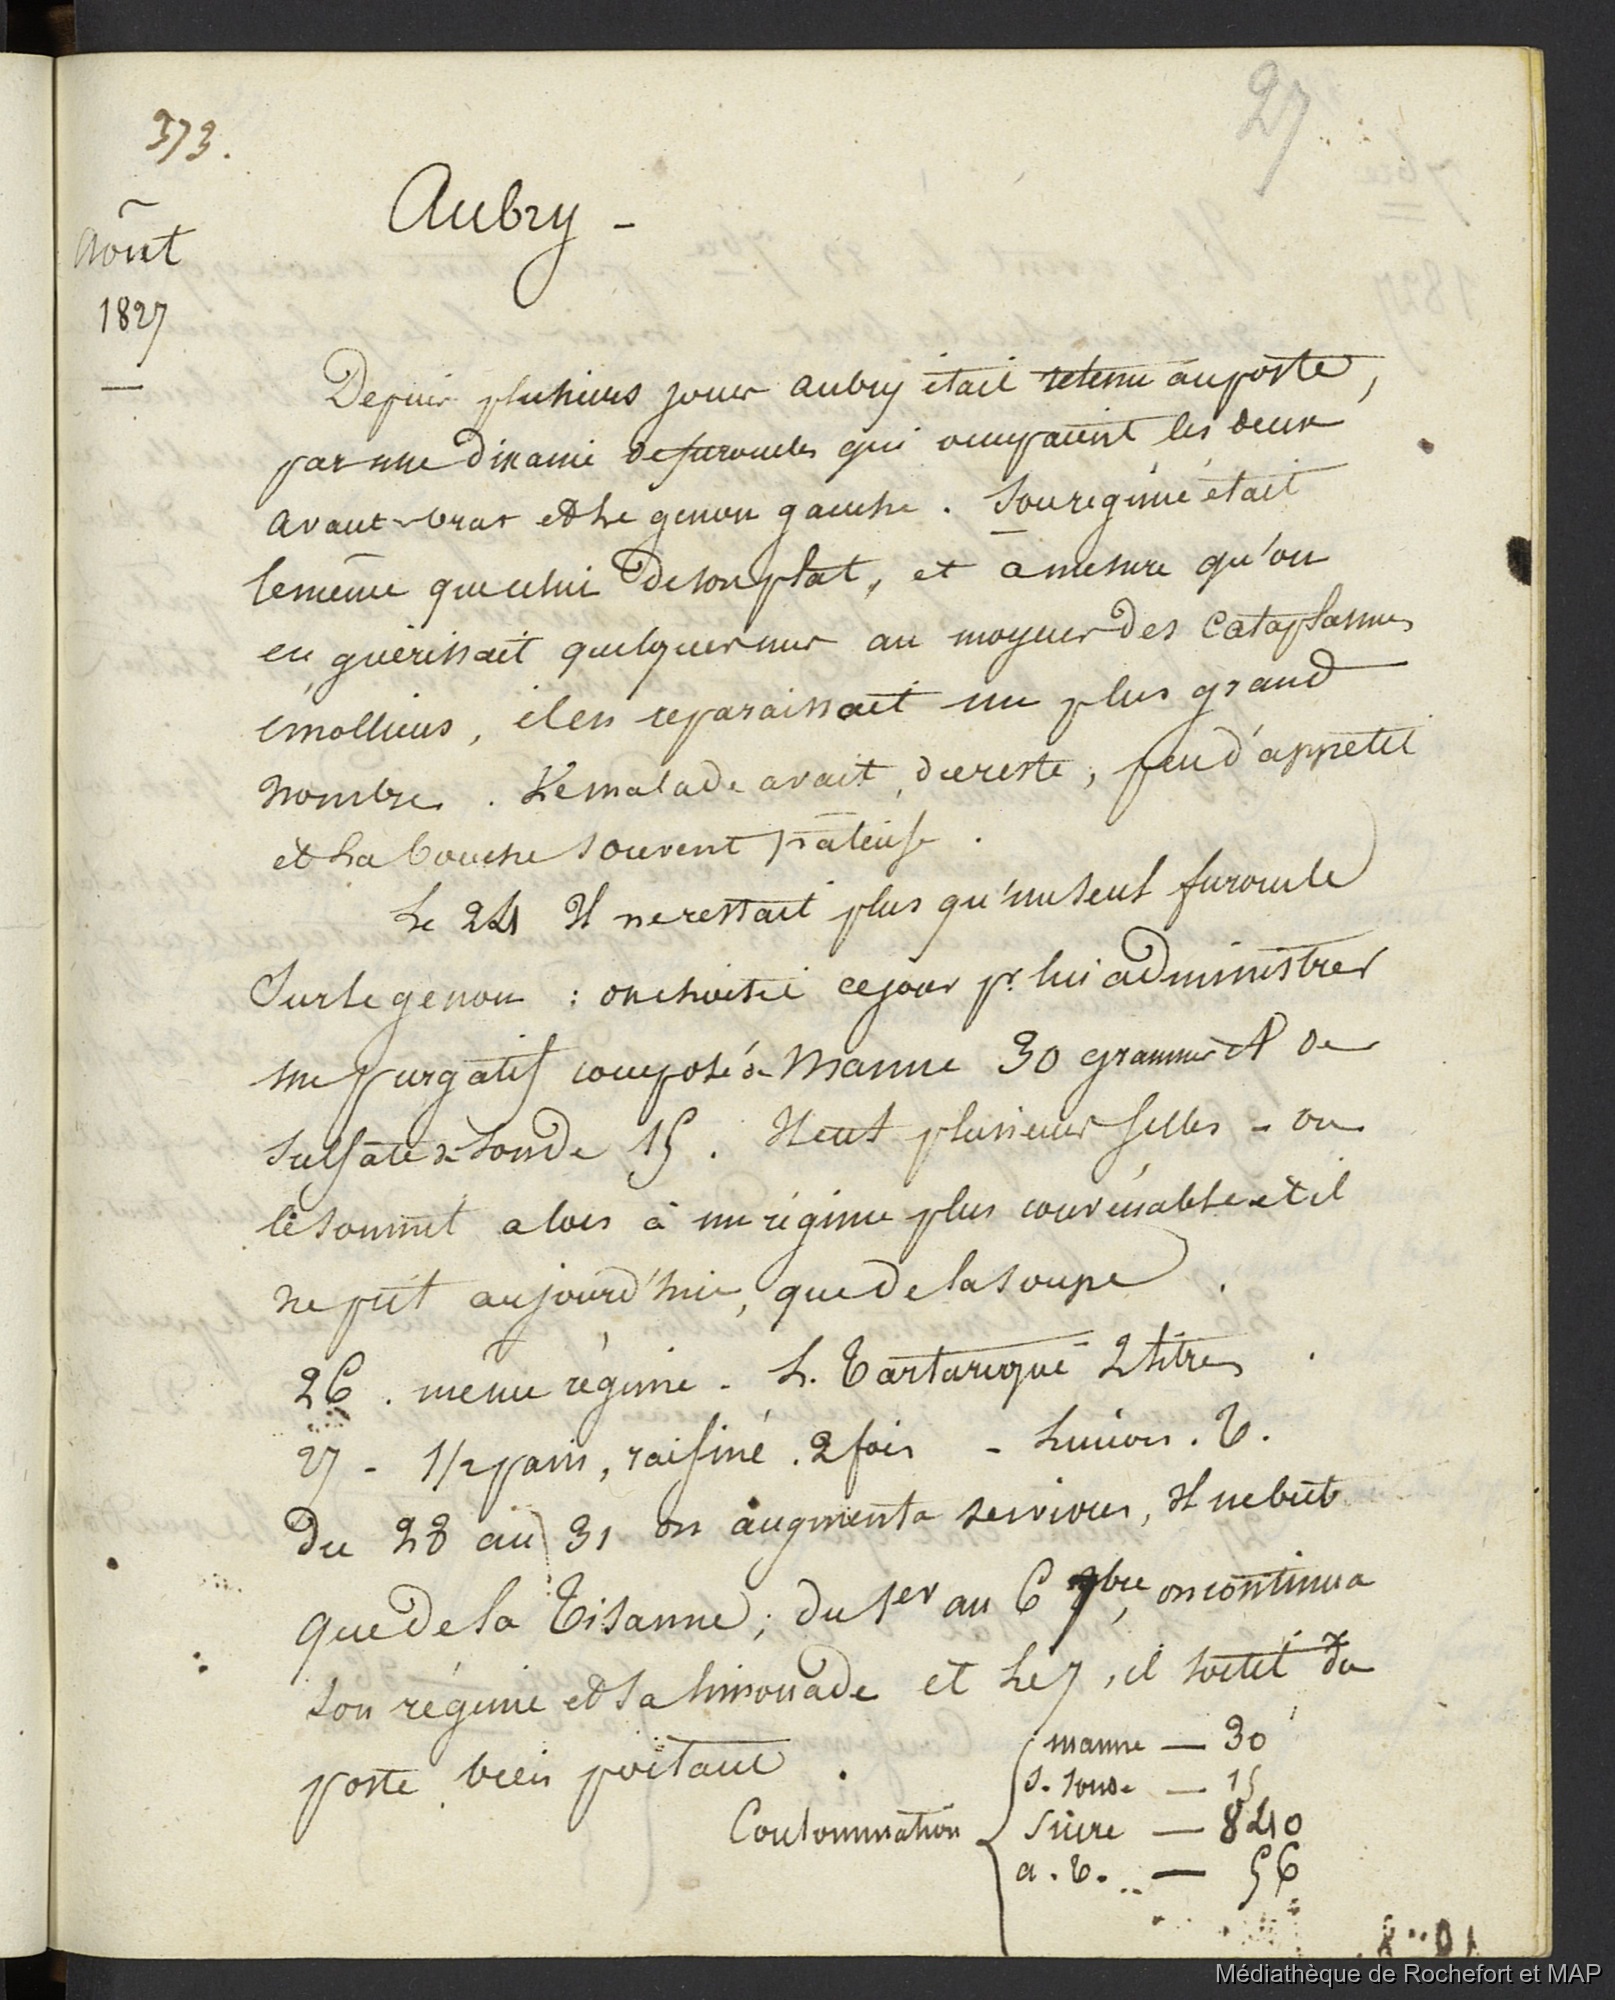 27
373.
Aubry -
Août
1827
Depuis plusieurs jours Aubry était retenu au poste,
par une dixaine de furoncles qui occupaient les deux
avant-bras et le genou gauche. Son régime était
le même que celui de son plat, et à mesure qu'on
en guérissait quelques uns au moyen des cataplasmes
émolliens, il en reparaissait un plus grand
nombre. Le malade avait, du reste, peu d'appétit
et la bouche souvent pâteuse.
Le 24 Il ne restait plus qu'un seul furoncle
sur le genou : on choisit ce jour pr. lui administrer
un purgatif composé de Manne 30 grammes et de
sulfate de soude 15. Il eut plusieurs selles - on
le soumit alors à un régime plus convenable et il
ne prit aujourd'hui, que de la soupe.
26. même régime. L. Tartarique 2 litres
27 - 1/2 pain, raisiné. 2 fois - Limon. T.
Du 28 au 31 on augmenta ses vivres, Il ne but
que de la Tisanne; du 1er au 6 7bre, on continua
son régime et sa limonade et le 7, il sortit du
poste bien portant.
Consommation
manne — 30
S. soude — 15
Sucre — 840
a. T. — 56
Médiathèque de Rochefort et MAP